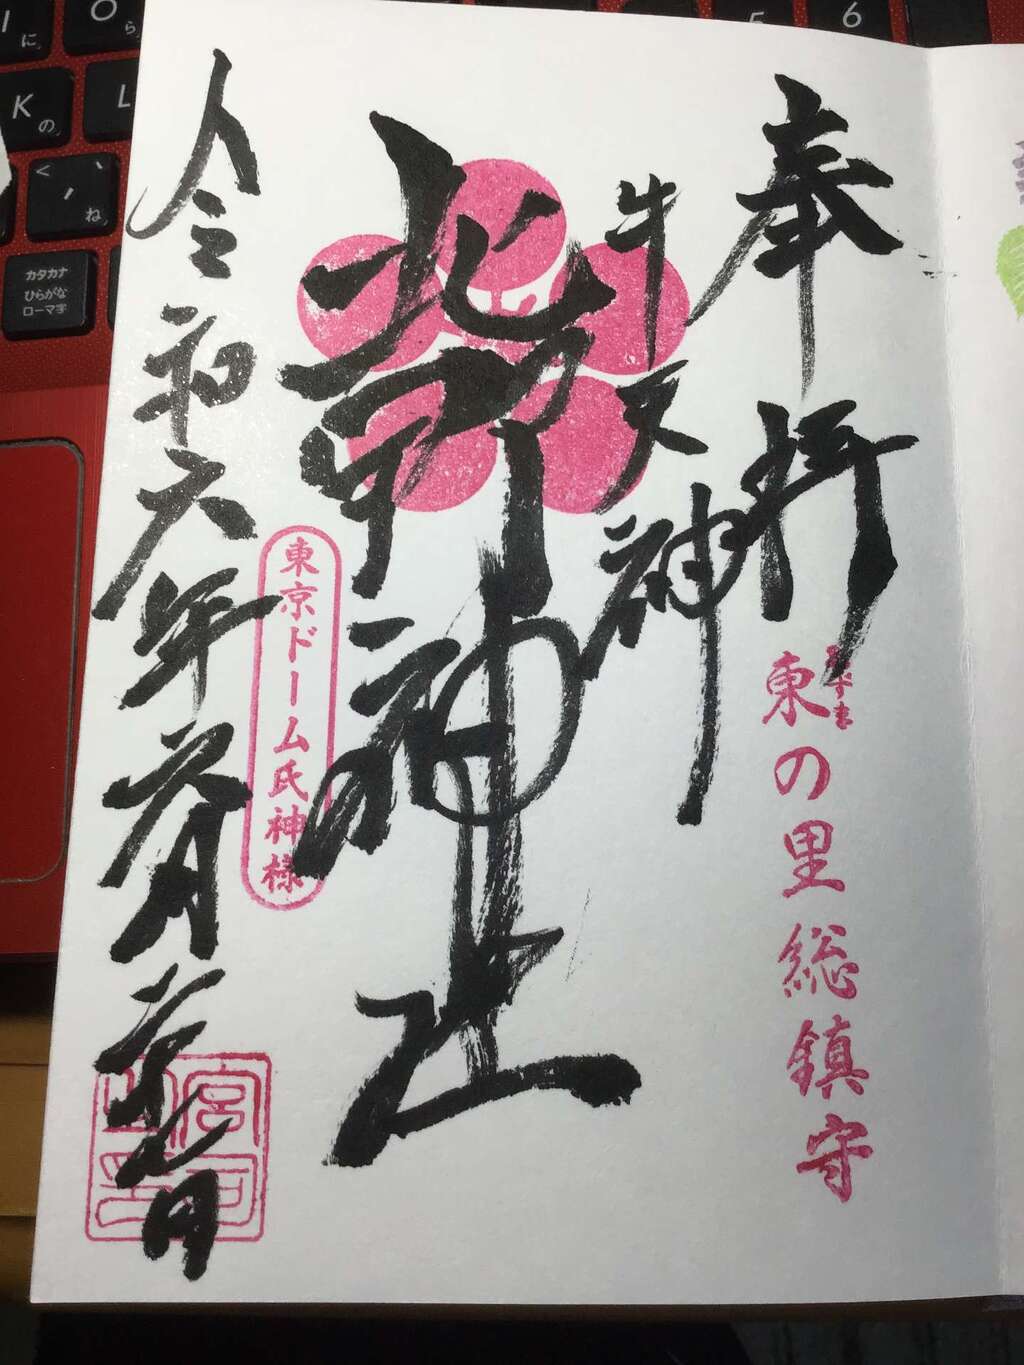 奉拝
あずま
東の里総鎮守
牛天神
北野神社
東京ドーム氏神様
令和六年六月二十七日
宮司之印
I
に
O
ら
5
6
K
の
L
<
、
ね
カタカナ
ひらがな
ローマ字